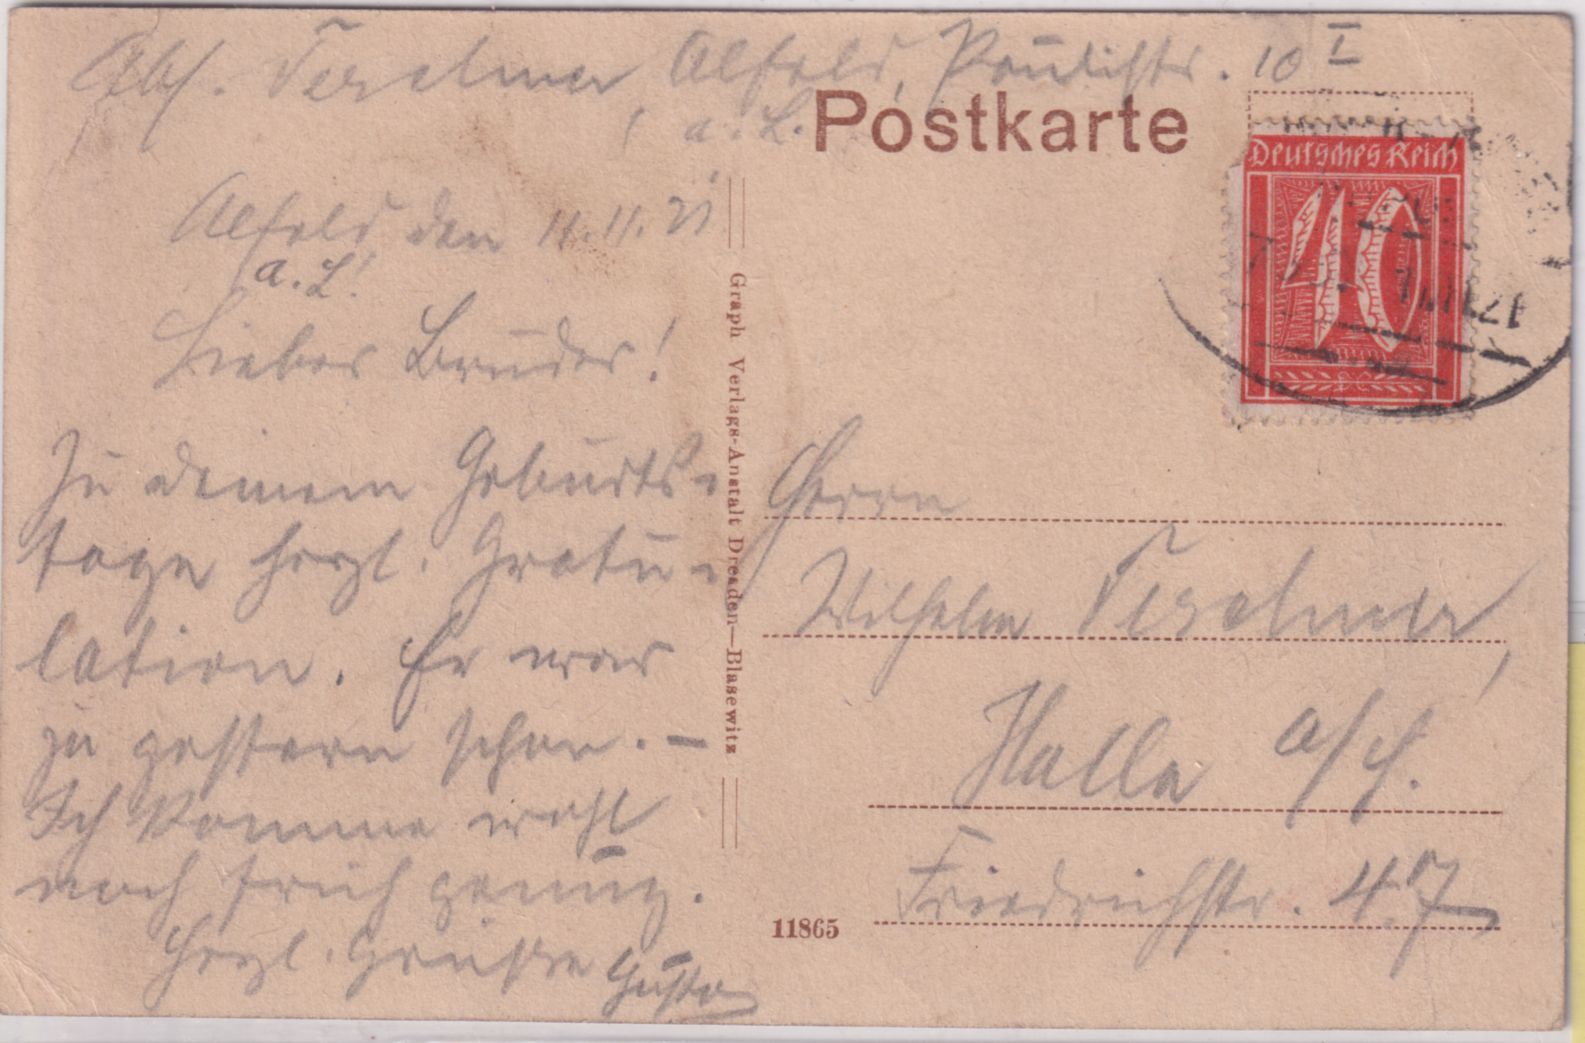 Abs. Teschner, Alfeld, Paulistr. 10 I
a. L.
Postkarte
Deutsches Reich
40
Alfeld, den 11.11.21
a. L.
Lieber Bruder!
Zu deinem Geburts-
tage herzl. Gratu-
lation. Er war
ja gestern schon. –
Ich komme wohl
noch früh genug.
Herzl. Grüße Gustav
Graph Verlags-Anstalt Dresden—Blasewitz
Herrn
Wilhelm
Halle a/S.
Friedrichstr. 47
11865